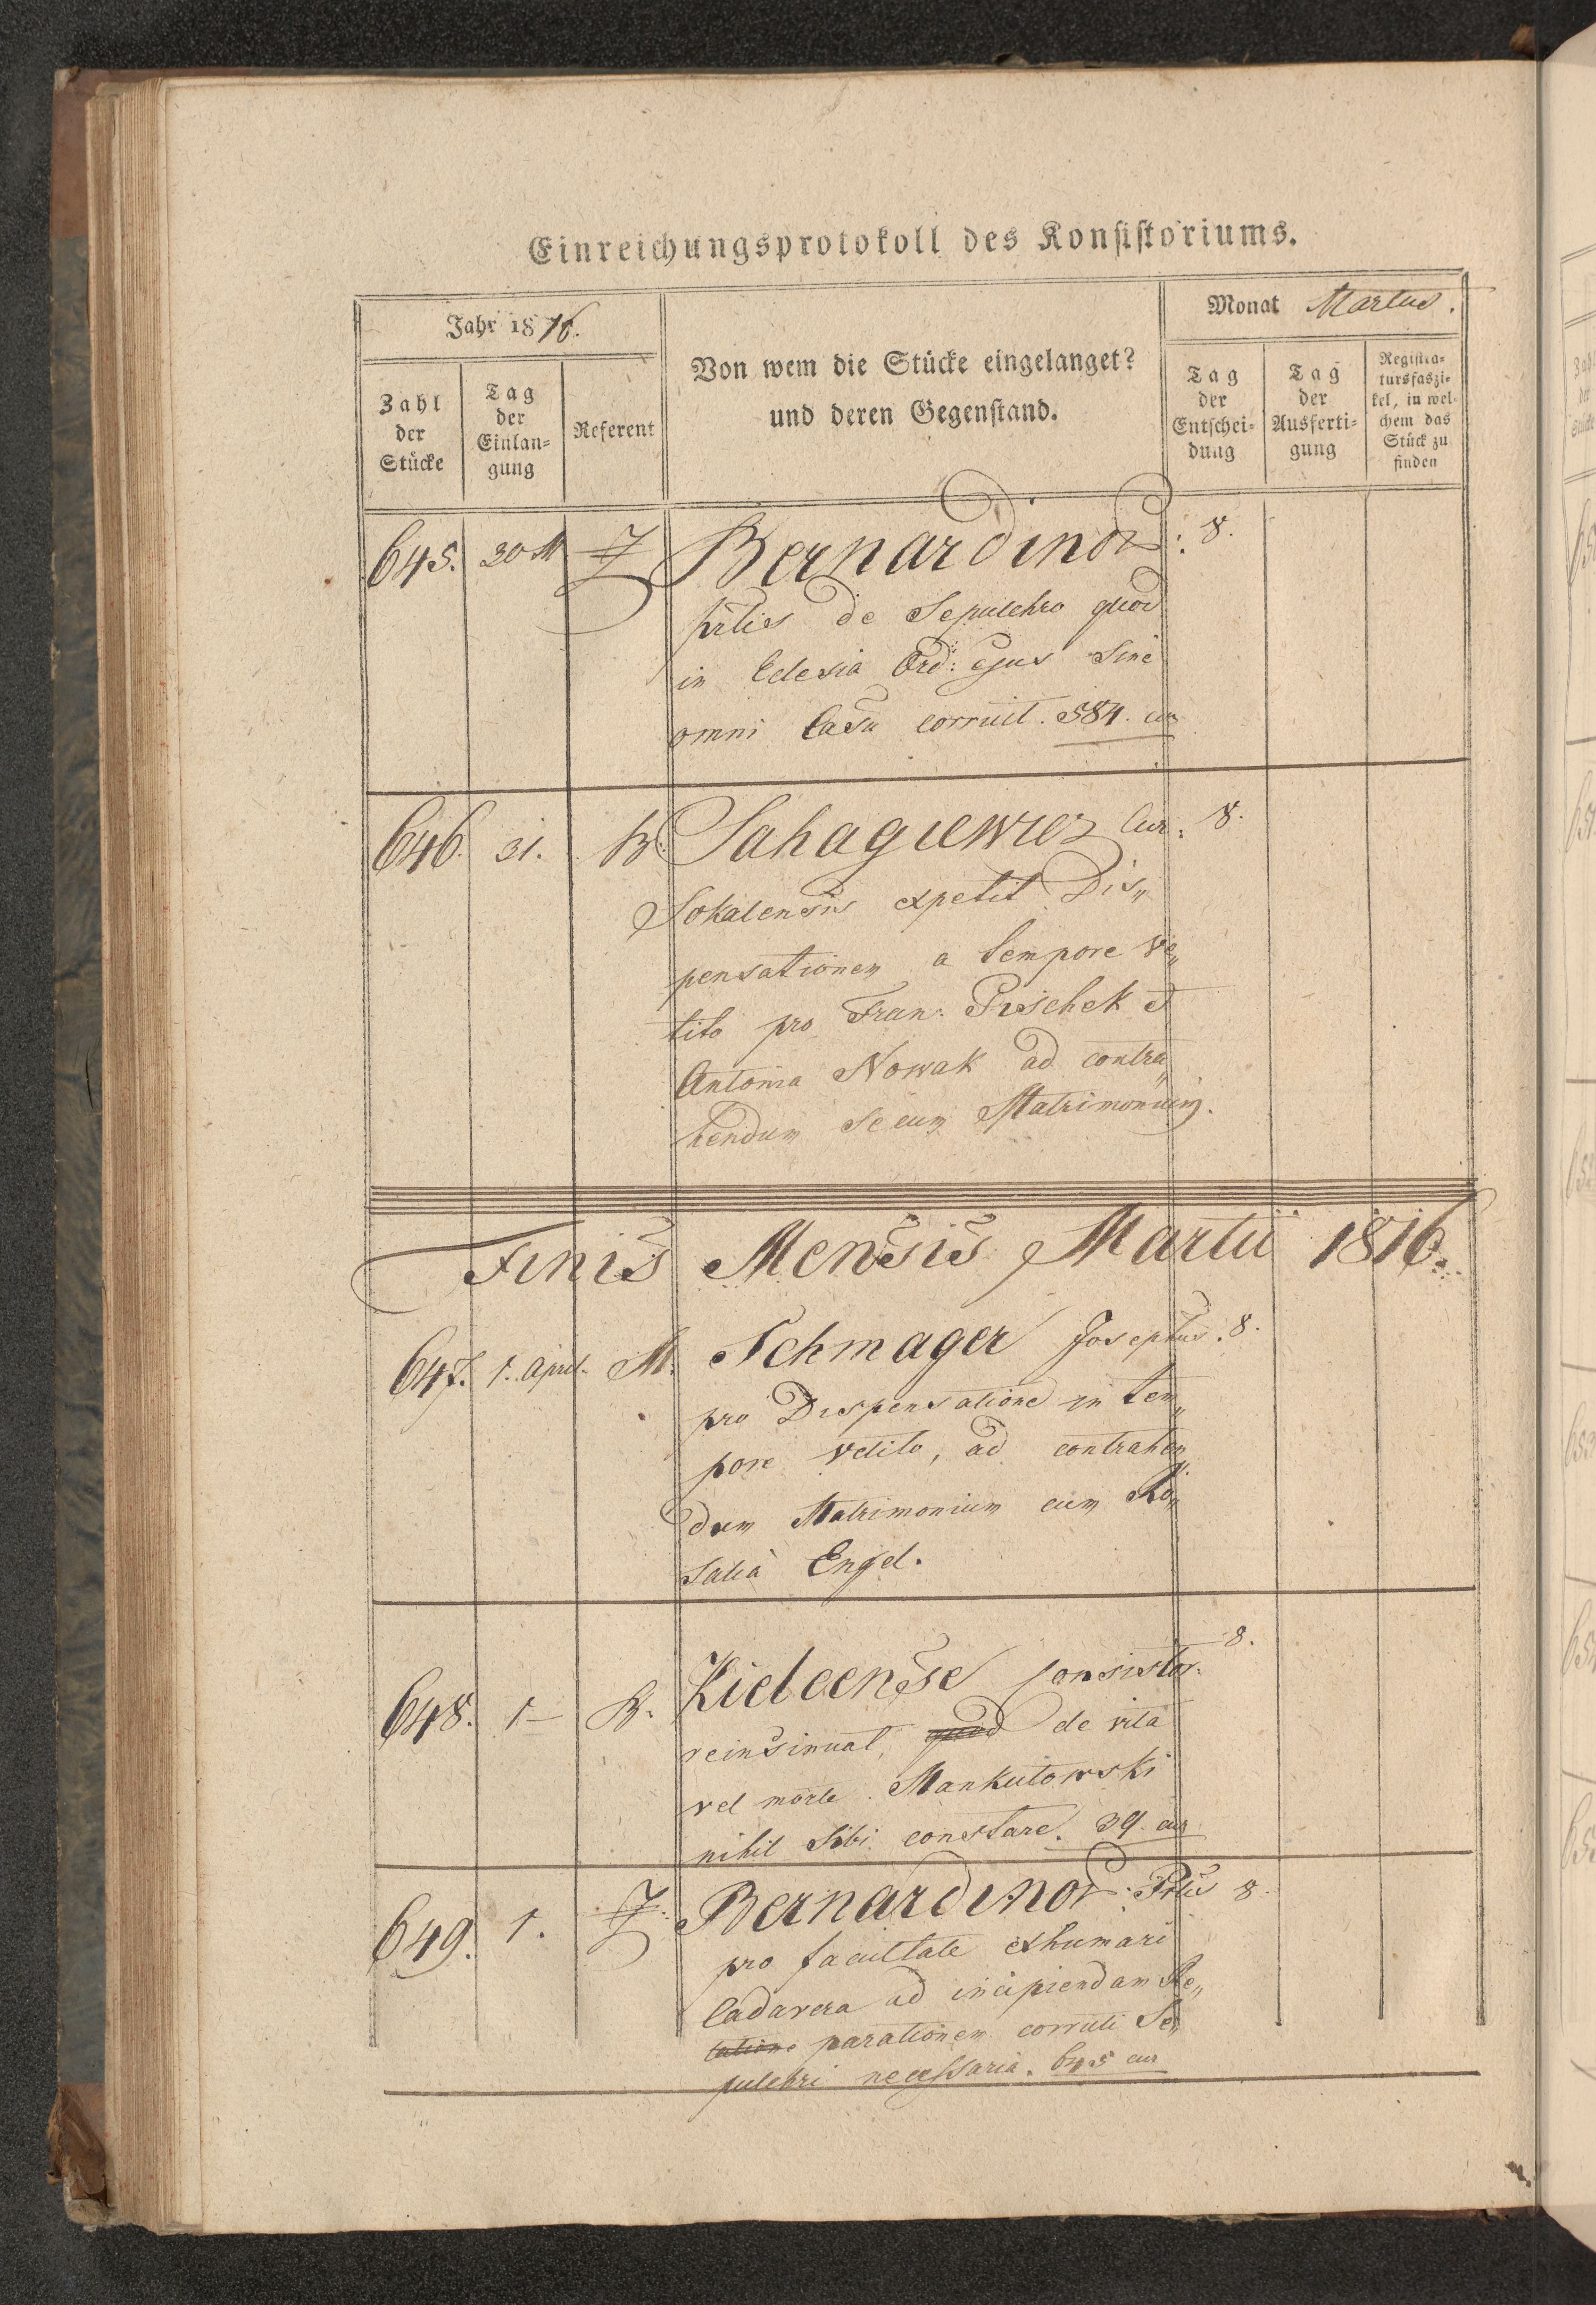 Einreichungsprotokoll des Konsistoriums.
Jahr 1816.
Monat Martius.
Zahl der Stücke
Tag der Einlangung
Referent
Von wem die Stücke eingelanget?
und deren Gegenstand.
Tag der Entscheidung
Tag der Ausfertigung
Registratursfaszikel, in welchem das Stück zu finden
645. 30 M Z Bernardinor: 8.
prtis de Sepulchro quod
in Eclesia Ord: ejus sine
omni Casu corruit. 584. cur
646. 31. B. Sahagiewicz Cur. 8.
Sokalensis expetit Dis„
pensationem a tempore ve„
tito pro Fran: Prischek et
Antonia Nowak ad contra„
hendum secum Matrimonium.
Finis Mensis Martii 1816.
647. 1. April. M. Schmager Josephus. 8.
pro Dispensatione in tem„
pore vetito, ad contrahen„
dum Matrimonium cum Ro„
salia Engel.
648. 1 B. Kielcense Consistor. 8.
reinsinuat, quod de vita
vel morte Mankutowski
nihil sibi constare. 39. cur
649. 1. Z. Bernardinor: Prtis 8.
pro facultate exhumari
Cadavera ad incipiendam Re„
parationem corruti Se„
pulchri necessaria. 645 cur